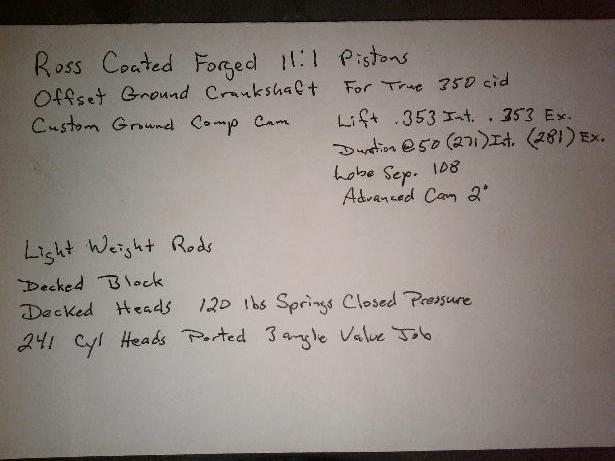 Ross Coated Forged 11:1 Pistons
Offset Ground Crankshaft For True 350 cid
Custom Ground Comp Cam Lift .353 Int. .353 Ex.
Duration @ 50 (271) Int. (281) Ex.
Lobe Sep. 108
Advanced Cam 2°
Light Weight Rods
Decked Block
Decked Heads 120 lbs Springs Closed Pressure
241 Cyl Heads Ported 3 angle Value Job